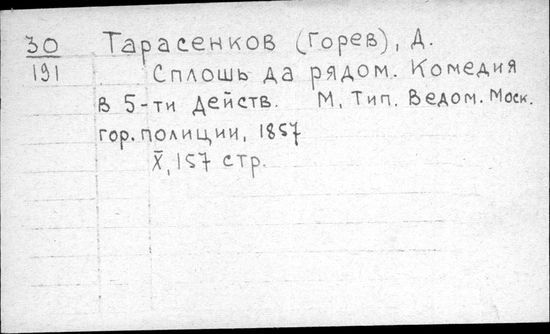 30 Тарасенков (Горев), Д.
191 Сплошь да рядом. Комедия
в 5-ти действ. М, Тип. Ведом. Моск.
гор. полиции, 1857
X, 157 стр.